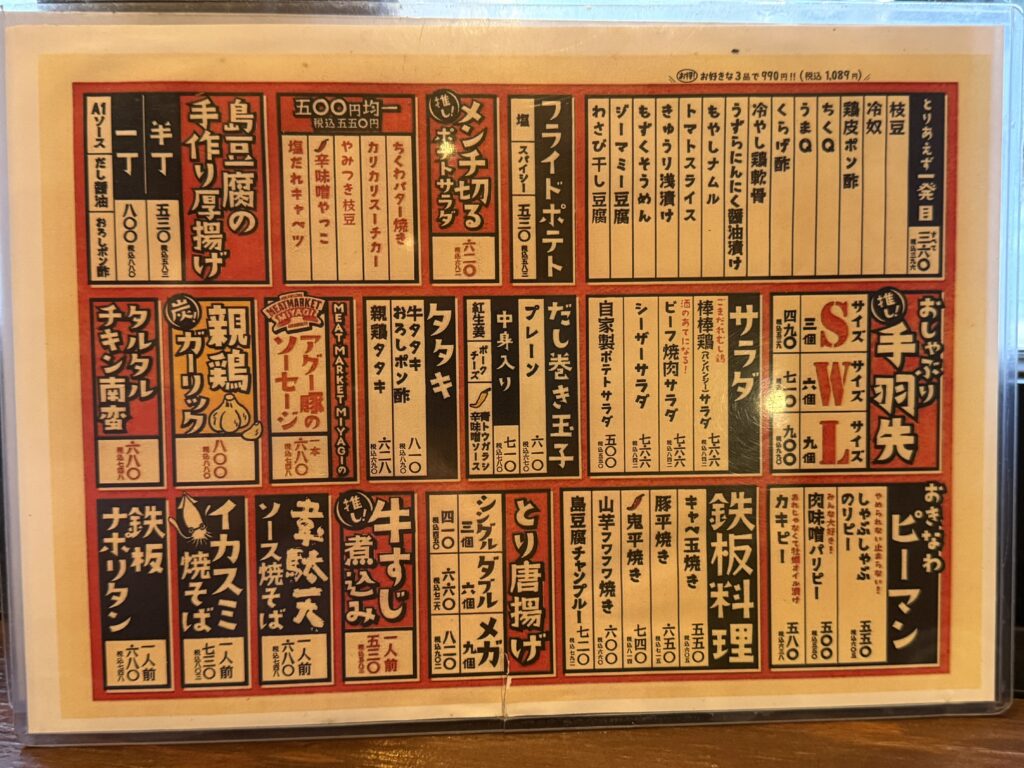 お得! お好きな3品で990円!!(税込1,089円)
とりあえず一発目
すべて 三六〇 税込三九六
枝豆
冷奴
鶏皮ポン酢
ちくQ
うまQ
くらげ酢
冷やし鶏軟骨
うずらにんにく醤油漬け
もやしナムル
トマトスライス
きゅうり浅漬け
もずくそうめん
ジーマミー豆腐
わさび干し豆腐
フライドポテト
塩
スパイシー
五三〇 税込五八三
推し!
メンチ切る
ポテトサラダ
六二〇 税込六八二
五〇〇円均一
税込五五〇円
ちくわバター焼き
カリカリスーチカー
やみつき枝豆
辛味噌やっこ
塩だれキャベツ
島豆腐の
手作り厚揚げ
半丁 五三〇 税込五八三
一丁 八〇〇 税込八八〇
A1ソース
だし醤油
おろしポン酢
おしゃぶり
推し!
手羽先
Sサイズ 三個 四九〇 税込五三九
Wサイズ 六個 七一〇 税込七八一
Lサイズ 九個 九〇〇 税込九九〇
サラダ
ごまだれむし鶏
棒棒鶏(バンバンジー)サラダ 七六六 税込八四二
酒のあてになる!
ビーフ焼肉サラダ 七六六 税込八四二
シーザーサラダ 七六六 税込八四二
自家製ポテトサラダ 五〇〇 税込五五〇
だし巻き玉子
プレーン 六一〇 税込六七〇
中身入り 七一〇 税込七八〇
紅生姜
ポーク チーズ
青トウガラシ
辛味噌ソース
タタキ
牛タタキ
おろしポン酢 八一〇
親鶏タタキ 六二八 税込六九〇
MEAT MARKET MIYAGIの
MEATMARKET
MIYAGI
アグー豚の
ソーセージ
一本 六八〇 税込七四八
炭
親鶏
ガーリック
八〇〇 税込八八〇
タルタル
チキン南蛮
六八〇 税込七四八
おきなわ
ピーマン
やめられない止まらない!
しゃぶしゃぶ
のリピー 五五〇 税込六〇五
みんな大好き!
肉味噌パリピー 五〇〇 税込五五〇
あれじゃなくて牡蠣オイル漬け
カキピー 五八〇 税込六三八
鉄板料理
キャ玉焼き 五五〇 税込六〇五
豚平焼き 六五〇 税込七一五
鬼平焼き 七四〇 税込八一四
山芋フワフワ焼き 六〇〇 税込六六〇
島豆腐チャンプルー 七二〇 税込七九二
とり唐揚げ
シングル 三個 四一〇 税込四五一
ダブル 六個 六六〇 税込七二六
メガ 九個 八二〇 税込九〇二
推し!
牛すじ
煮込み
一人前 五三〇 税込五八三
韋駄天
ソース焼そば
一人前 六八〇 税込七四八
イカスミ
焼そば
一人前 七三〇 税込八〇三
鉄板
ナポリタン
一人前 六八〇 税込七四八